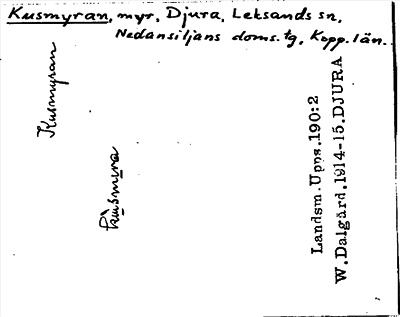 Kusmyran, myr, Djura, Leksands sn,
Nedansiljans doms. tg, Kopp. län.
Kusmyran
Landsm. Upps. 190:2
W. Dalgård. 1914-15. DJURA